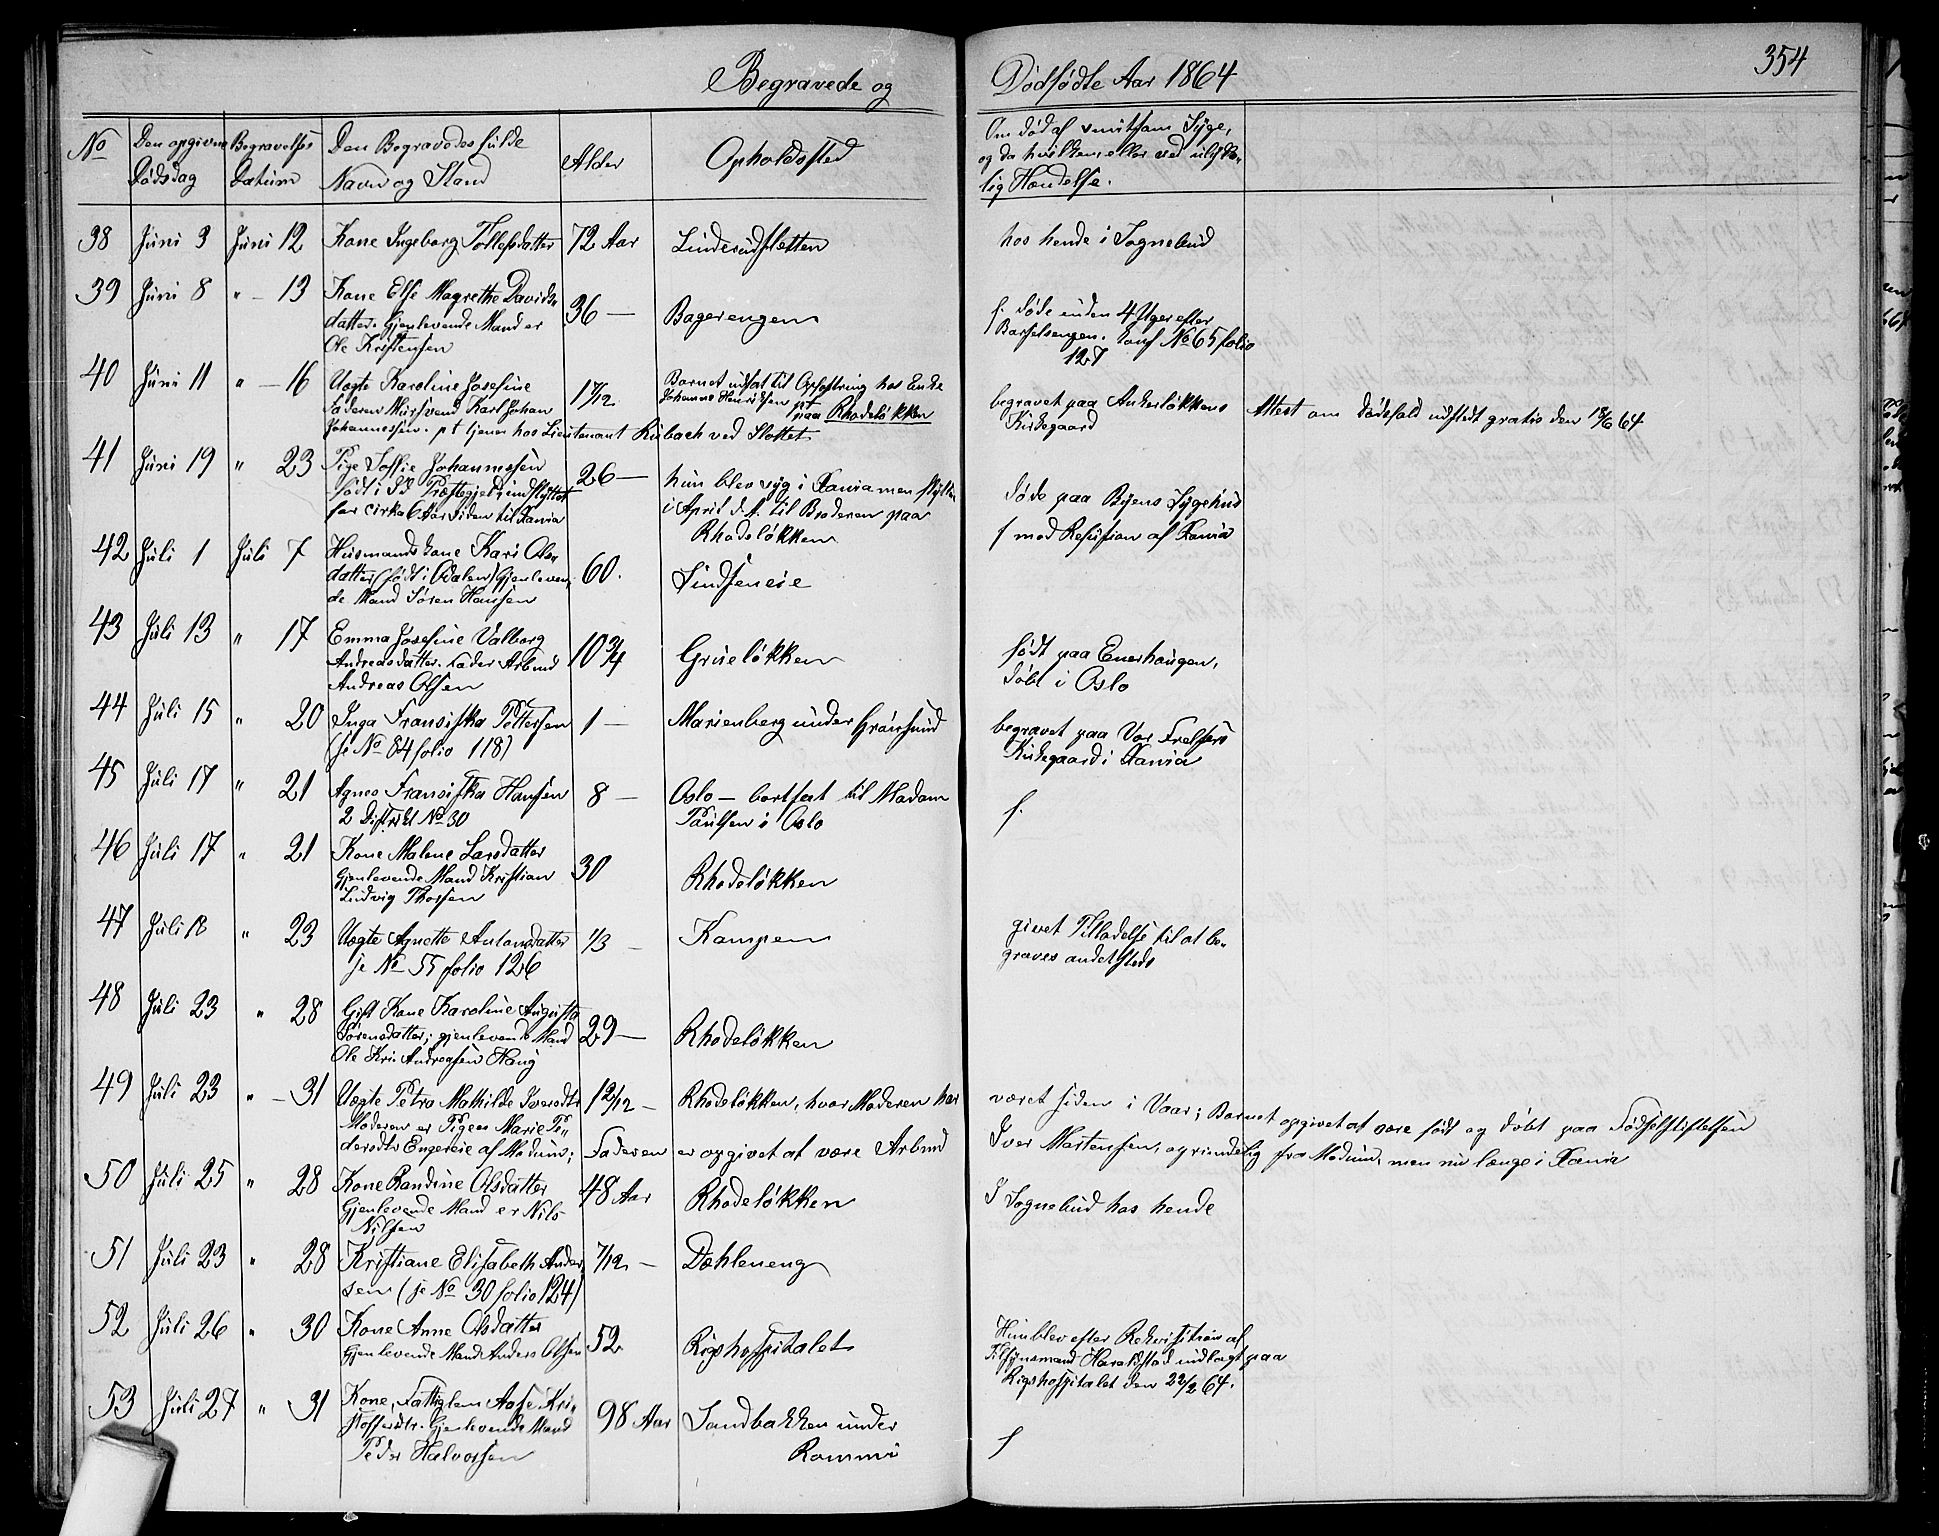 354
Begravede og Dødfødte Aar 1864
No
Den opgivne Dødsdag
Begravelses Datum
Den Begravedes fulde Navn og Stand
Alder
Opholdssted
Om død af smitsom Syge,
og da hvilken, eller ved ulykke-
lig Hændelse.
38 Juni 3 Juni 12 Kone Ingeborg Tollefsdatter 72 Aar Linderudsletten hos hende i Sognebud
39 Juni 8 " — 13 Kone Else Magrethe Davids-
datter. Gjenlevende Mand er
Ole Kristensen
36 — Bagerengen
f. døde inden 4 Uger efter
Barselsengen. Conf No 65 folio
127
40 Juni 11 " — 16 Uægte Karoline Josefine
Faderen Mursvend Karl Johan
Johannessen. pt tjener hos Lieutenant Rubach ved Slottet
1 7/12 Barnet udsat til Opfostring hos Enke
Johanne Henriksen pt
paa Rhodeløkken
begravet paa Ankerløkkens
Kirkegaard
Attest om Dødsfald udstedt gratis den 18/6 64
41 Juni 19 " 23 Pige Soffie Johannesen
født i Præstegjeld, indflyttet
for cirka 6 Aar siden til Xania
26 — hun blev syg i Xania men flyttet
i April d.A. til Broderen paa
Rhodeløkken
døde paa Byens Sygehus
f med Refusion af Xania
42 Juli 1 Juli 7 Husmandskone Kari Ols-
datter (født i Odalen) Gjenleven-
de Mand Søren Hansen
60. Lindseneie
43 Juli 13 " 17 Emma Josefine Valborg
Andreasdatter. Fader Arbmd
Andreas Olsen
10 3/4 Grueløkken
født paa Enerhaugen,
døbt i Oslo
44 Juli 15 " 20 Inga Fransiska Pettersen
(se No 84 folio 118)
1 — Marienberg under Grønsund
begravet paa Vor Frelsers
Kirkegaard i Xania
45 Juli 17 " 21 Agnes Fransiska Hansen
2 Distrikt No 30
8 — Oslo — bortsat til Madam
Paulsen i Oslo
f.
46 Juli 17 " 21 Kone Malene Larsdatter
Gjenlevende Mand Kristian
Ludvig Thorsen
30 Rhodeløkken
47 Juli 18 " 23 Uægte Agnette Antonsdatter
se No 55 folio 126
1/3 — Kampen
givet Tilladelse til at be-
graves andetsteds
48 Juli 23 " 28 Gift Kone Karoline Augusta
Sørensdatter; gjenlevende Mand
Ole Kri. Andreasen Haug
29 — Rhodeløkken
49 Juli 23 " — 31 Uægte Petra Mathilde Iversdtr
Moderen er Pigen Marie Pe-
dersdtr Engereie af Modum;
1 2/12 — Rhodeløkken, hvor Moderen har
været siden i Vaar; Barnet opgivet at være født og døbt paa Fødselstiftelsen
Faderen er opgivet at være Arbmd
Iver Mortensen, oprindelig fra Modum, men nu længe i Xania
50 Juli 25 " 28 Kone Randine Olsdatter
Gjenlevende Mand er Nils
Nilsen
48 Aar Rhodeløkken
I Sognebud hos hende
51 Juli 23 " 28 Kristiane Elisabeth Ander-
sen (se No 30 folio 124)
7/12 — Dæhleneng
52 Juli 26 " 30 Kone Anne Olsdatter
Gjenlevende Mand Anders Olsen
52 Rigshospitalet
Hun blev efter Rekvisition af
Tilsynsmand Haraldstad indlagt paa
Rigshospitalet den 22/2 64.
53 Juli 27 " 31 Kone, Fattiglem Aase Kri-
stoffersdtr. Gjenlevende Mand
Peder Halvorsen
98 Aar Sandbakken under
Rommi
f